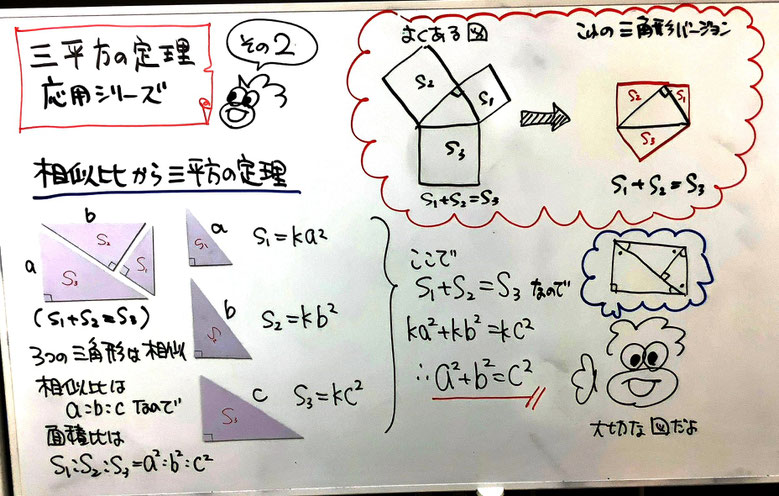 三平方の定理
応用シリーズ
その2
よくある図
これの三角形バージョン
S₂
S₁
S₃
S₁+S₂=S₃
S₂
S₁
S₃
S₁+S₂=S₃
相似比から三平方の定理
b
a
S₂
S₁
S₃
(S₁+S₂=S₃)
3つの三角形は相似
相似比は
a:b:cなので
面積比は
S₁:S₂:S₃=a²:b²:c²
a
S₁
S₁=ka²
b
S₂=kb²
c
S₃
S₃=kC²
ここで
S₁+S₂=S₃なので
ka²+kb²=kc²
∴a²+b²=c²
大切な図だよ